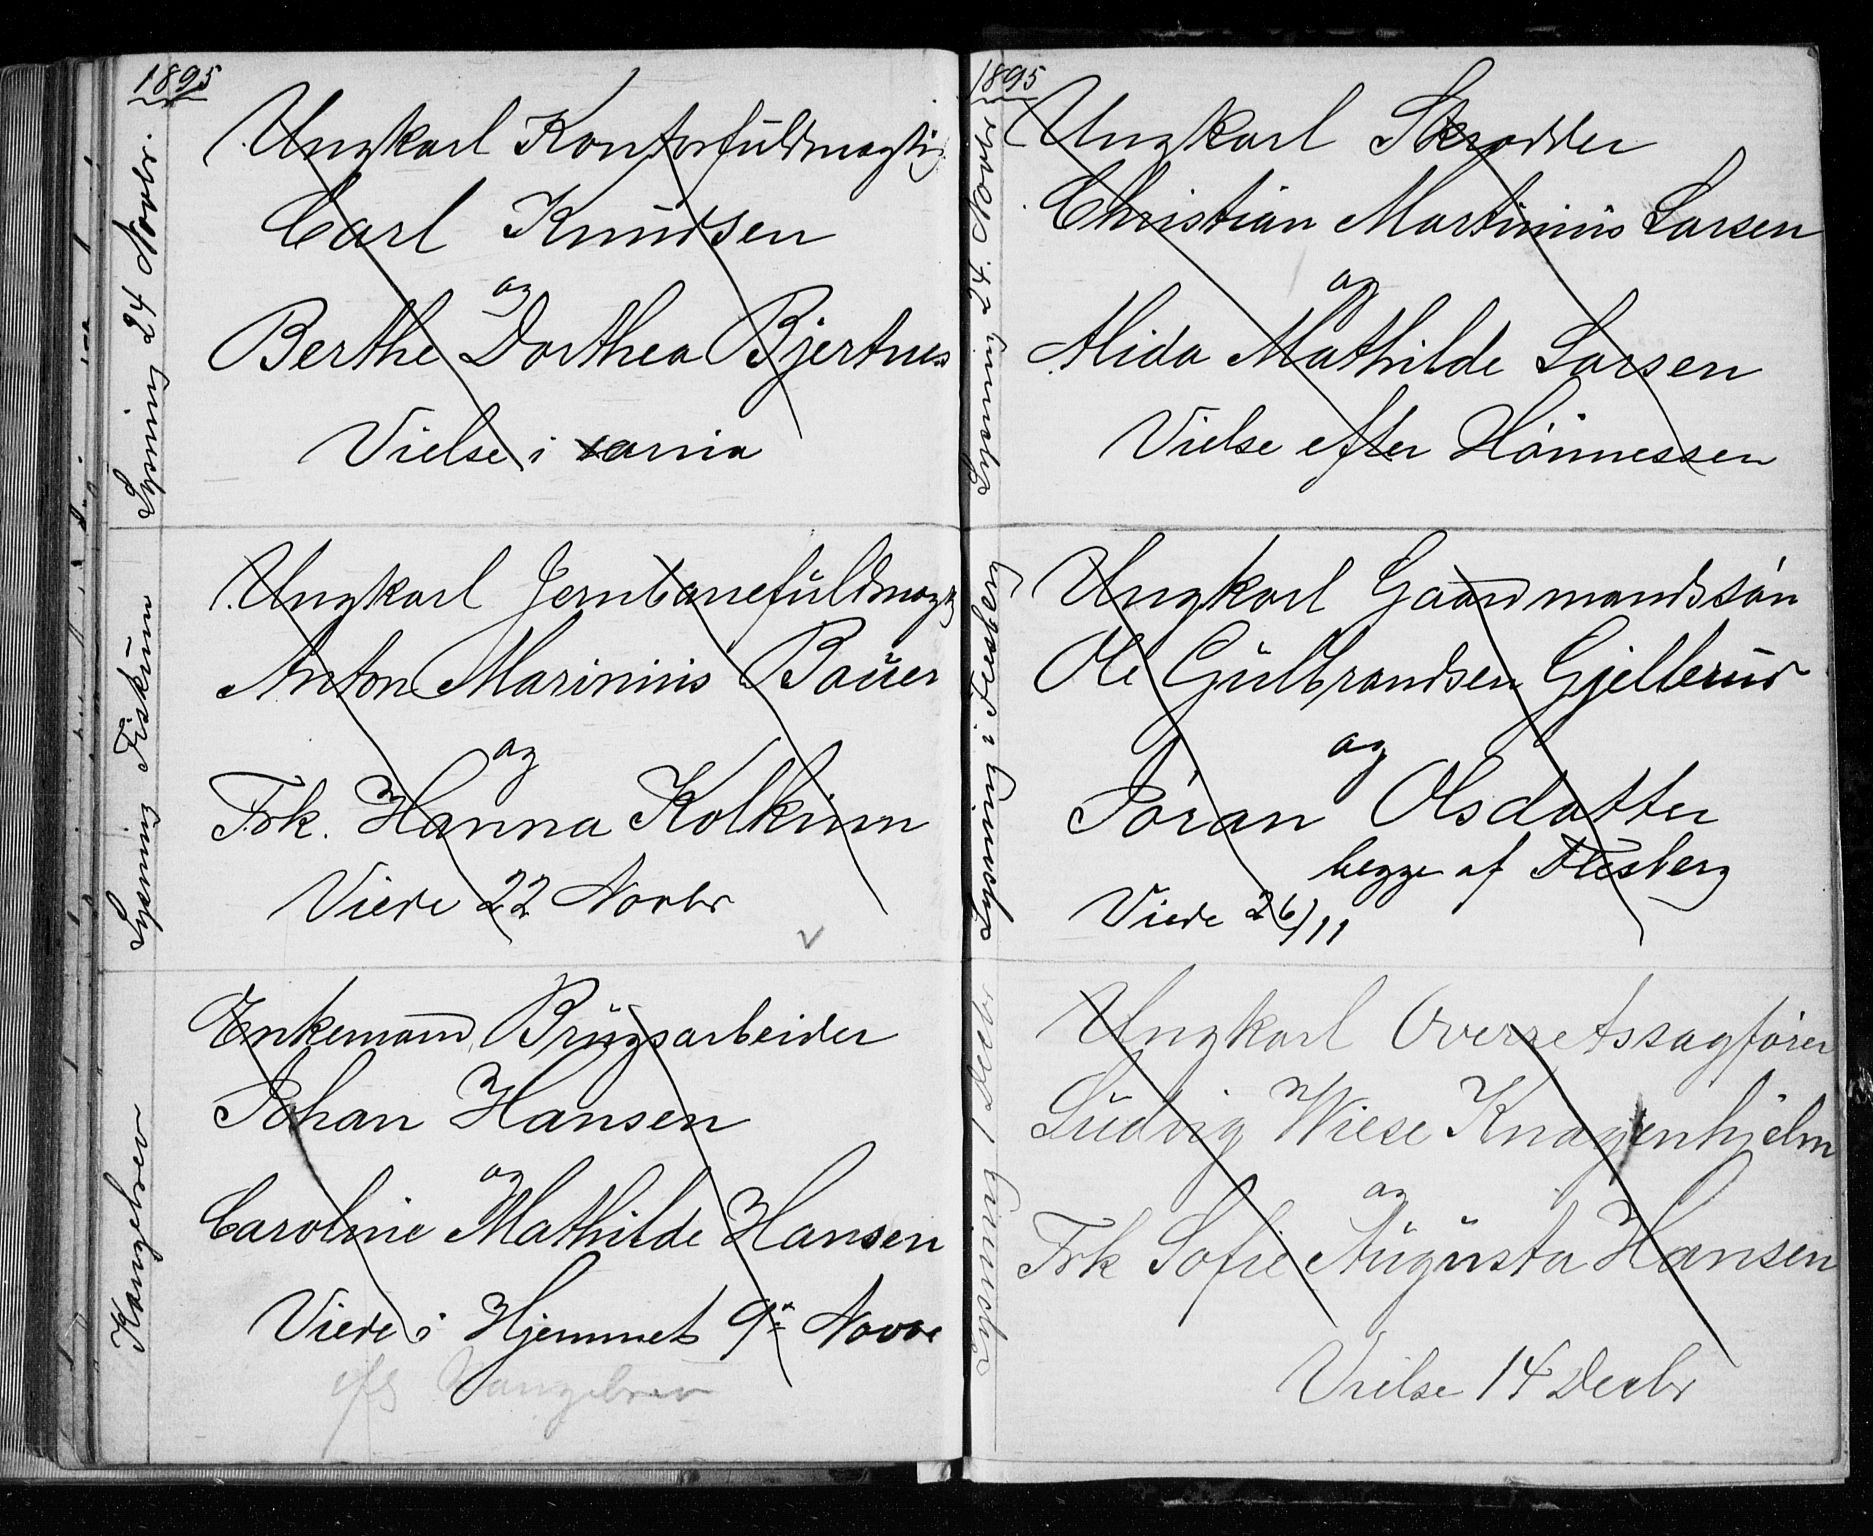 1895
Lysning 24 Novbr.
Ungkarl Kontorfuldmægtig
Carl Knudsen
og
Berthe Dorthea Bjertnes
Vielse i xania
Lysning Fiskum
Ungkarl Jernbanefuldmægt
Anton Marinius Bauer
og
Frk. Hanna Kolkinn
Viede 22 Novbr
Kongebrev
Enkemand, Brugsarbeider
Johan Hansen
og
Caroline Mathilde Hansen
Viede i Hjemmet 9de Novbr
efter Kongebrev
1895
Lysning 24. Novbr
Ungkarl Skrædder
Christian Martinius Larsen
og
Alida Mathilde Larsen
Vielse efter Høimessen
Lysning i Flesberg
Ungkarl Gaardmandssøn
Ole Gulbrandsen Gjellerud
og
Jöran Olsdatter
begge af Flesberg
Viede 26/11
Lysning 1 Decbr
Ungkarl Overretssagfører
Ludvig Wiese Knagenhjelm
og
Frk Sofie Augusta Hansen
Vielse 14 Decbr